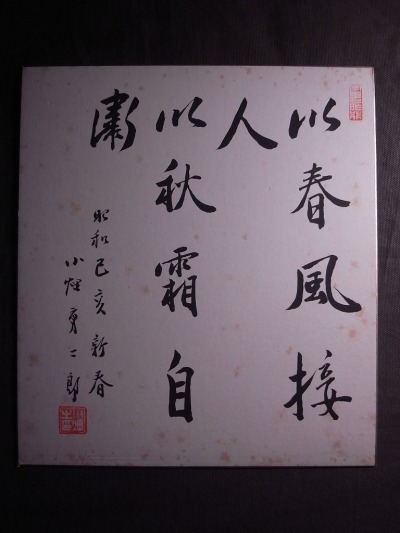 以春風接
人
以秋霜自
粛
昭和己亥新春
小畑勇二郎